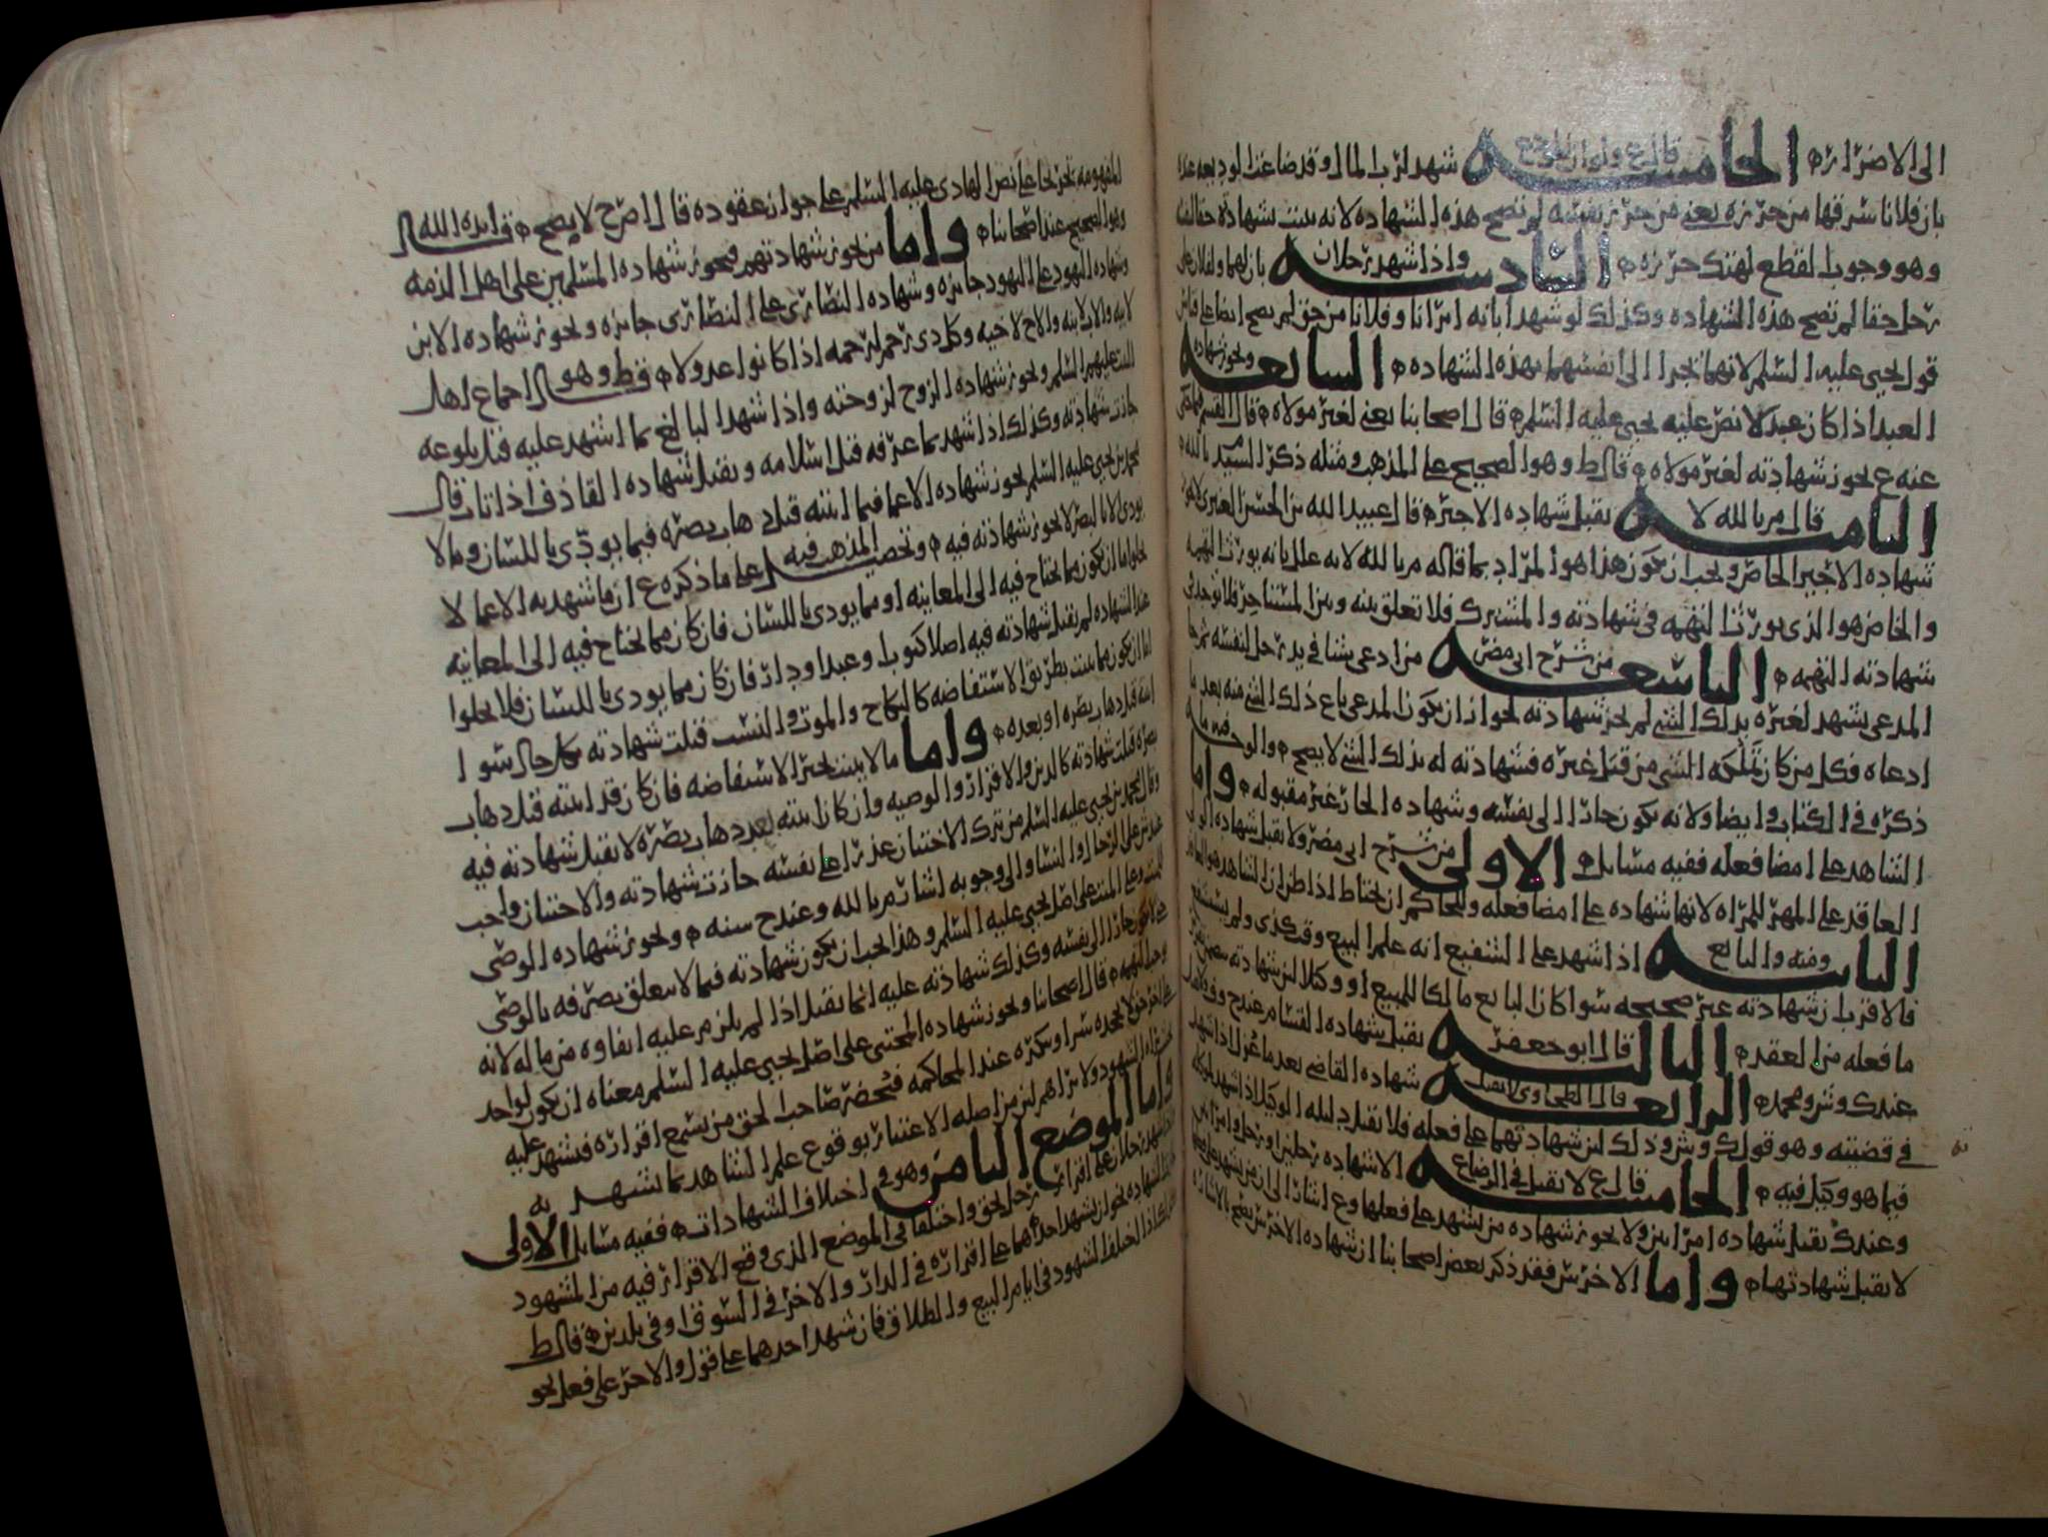 الى الاضرار ه الخامسه قال ع ولو ان شهد لرب المال وقد ضاعت الوديعه عنده
بان فلانا سرقها من حرزه يعني من حرز نفسه لم تصح هذه الشهاده لانه يثبت بشهادته حقا لنفسه
وهو وجوب القطع لهتك حرزه ه السادسه واذا شهد رجلان بان لهما ولفلان على
رجل حقا لم تصح هذه الشهاده وكذلك لو شهدا بانه ابرانا وفلانا من حق لم يصح ايضا على قياس
قول يحيى عليه السلم لانهما تجرا الى انفسهما بهذه الشهاده ه السابعه وتجوز شهاده
العبد اذا كان عبدلا نص عليه يحيى عليه السلم ه قال اصحابنا يعني لغير مولاه ه قال القسم
عنه ع تجوز شهادته لغير مولاه ه قال ط وهو الصحيح على المذهب ومثله ذكر السيد م بالله ه
الثامنه قال م بالله لا تقبل شهاده الاجير ه قال عبيد الله بن الحسن العنبري لا تجوز
شهاده الاجير الخاص ويجب ان يكون هذا هو المراد بما قاله م بالله لانه علل بانه يورث التهمه
والخاص هو الذي يورث التهمه في شهادته والمشترك فلا تعلق بينه وبين المستاجر فلا توجد في
شهادته التهمه ه التاسعه من شرح ابي مضر من ادعى شيا في يد رجل لنفسه ثم جا
المدعي يشهد لغيره بذلك الشي لم تجز شهادته لجواز ان يكون المدعي باع ذلك الشي منه بعد ما
ادعاه فكل من كان تملكه الشي من قبل غيره فشهادته له بذلك الشي لا يصح ه والوجه فيه ما
ذكره في الكتاب وايضا ولانه يكون جارا الى نفسه وشهاده الجار غير مقبوله ه واما
الشاهد على امضا فعله ففيه مسايل ه الاولى من شرح ابي مضر ولا تقبل شهاده الولي
العاقد على المهر للمراه لانها شهاده على امضا فعله وللحاكم ان يحتاط اذا ظن ان الشاهد هو العاقد
الثانيه ومنه والبايع اذا شهد على الشفيع انه علم البيع وقت كذى ولم يستشفع
فالاقرب ان شهادته غير صحيحه سوا كان البايع مالكا للمبيع او وكيلا لان شهادته تتضمن تقرير
ما فعله من العقد ه الثالثه قال ابو جعفر تقبل شهاده القسام عند ح وف ولا تقبل
عند ك وش ومحمد ه الرابعه قال الطحاوي لا تقبل شهاده القاضي بعد ما عزل اذا شهد
في قضيته وهو قول ك وش وذلك لان شهادتهما على فعله فلا تقبل دليله الوكيل اذا شهد لموكله
فيما هو وكيل فيه ه الخامسه قال ع لا تقبل في الرضاع الا شهاده رجلين او رجل وامراتين
وعند ك تقبل شهاده امراتين ولا تجوز شهاده من يشهد على فعلها وع اشار الى ان من يشهد على فعله
لا تقبل شهادتها ه واما الاخرس فقد ذكر بعض اصحابنا ان شهاده الاخرس تصح بالاشاره
المفهومه تخريجا على نص الهادي عليه السلم على جواز عقوده قال ا ص ح لا يصح ه قال ايده الله
وهو الصحيح عند اصحابنا ه واما من تجوز شهادتهم فيجوز شهاده المسلمين على اهل الذمه
وشهاده اليهود على اليهود جايزه وشهاده النصارى على النصارى جايزه وتجوز شهاده الابن
لابيه والاب لابنه والاخ لاخيه وكل ذي رحم لرحمه اذا كانوا عدولا ه قال ط وهو اجماع اهل
البيت عليهم السلم وتجوز شهاده الزوج لزوجته واذا شهد البالغ بما اشهد عليه قبل بلوغه
جازت شهادته وكذلك اذا شهد بما عرفه قبل اسلامه وتقبل شهاده القاذف اذا تاب قال
محمد بن يحيى عليه السلم تجوز شهاده الاعما فيما اثبته قبل ذهاب بصره فيما يودى باللسان وما لا
يودى الا بالبصر لا تجوز شهادته فيه ه وتحصيل المذهب فيه على ما ذكره ع ان ما شهد به الاعما لا
يخلوا اما ان يكون مما يحتاج فيه الى المعاينه او مما يودى باللسان فان كان مما يحتاج فيه الى المعاينه
عند الشهاده لم تقبل شهادته فيه اصلا كثوب وعبد ودار فان كان مما يودى باللسان فلا يخلوا
اما ان يكون مما يثبت بطريق الاستفاضه كالنكاح والموت والنسب قبلت شهادته بكل حال سوا
اثبته قبل ذهاب بصره او بعده ه واما ما لا يثبت بخبر الاستفاضه فان كان قد اثبته قبل ذهاب
بصره قبلت شهادته كالدين والاقرار والوصيه وان كان اثبته بعد ذهاب بصره لا تقبل شهادته فيه
وقال محمد بن يحيى عليه السلم من ترك الاختتان عذرا على نفسه جازت شهادته والاختتان واجب
عند ش على الرجال والنسا والى وجوبه اشار م بالله وعند ح سنه ه وتجوز شهاده الوصي
للميت وعلى الميت على اصل يحيى عليه السلم وهذا يجب ان يكون شهادته فيما لا يتعلق تصرفه بالوصي
حتى لا يكون جارا الى نفسه وكذلك شهادته عليه انما تقبل اذا لم يلزم عليه ايفاوه من ماله لانه
وجبت التهمه ه قال اصحابنا وتجوز شهاده المختبي على اصل يحيى عليه السلم معناه ان يكون لواحد
على اخر حق لا يجحده سرا وينكره عند المحاكمه فيحضر صاحب الحق من يسمع اقراره فيشهد عليه
الشهود ولا يراهم لان من اصله الاعتبار بوقوع علم الشاهد بما يشهد به
واما الموضع الثامن وهو في اختلاف الشهادات ه ففيه مسايل الاولى
اذا شهد رجلان على اقرار رجل بحق واختلفا في الموضع الذي وقع الاقرار فيه من المشهود
الشهاده نحو ان يشهد احدهما على اقراره في الدار والاخر في السوق او في بلدين ه قال ط
وكذا اذا اختلف الشهود في ايام البيع والطلاق فان شهد احدهما على قول والاخر على فعل نحو